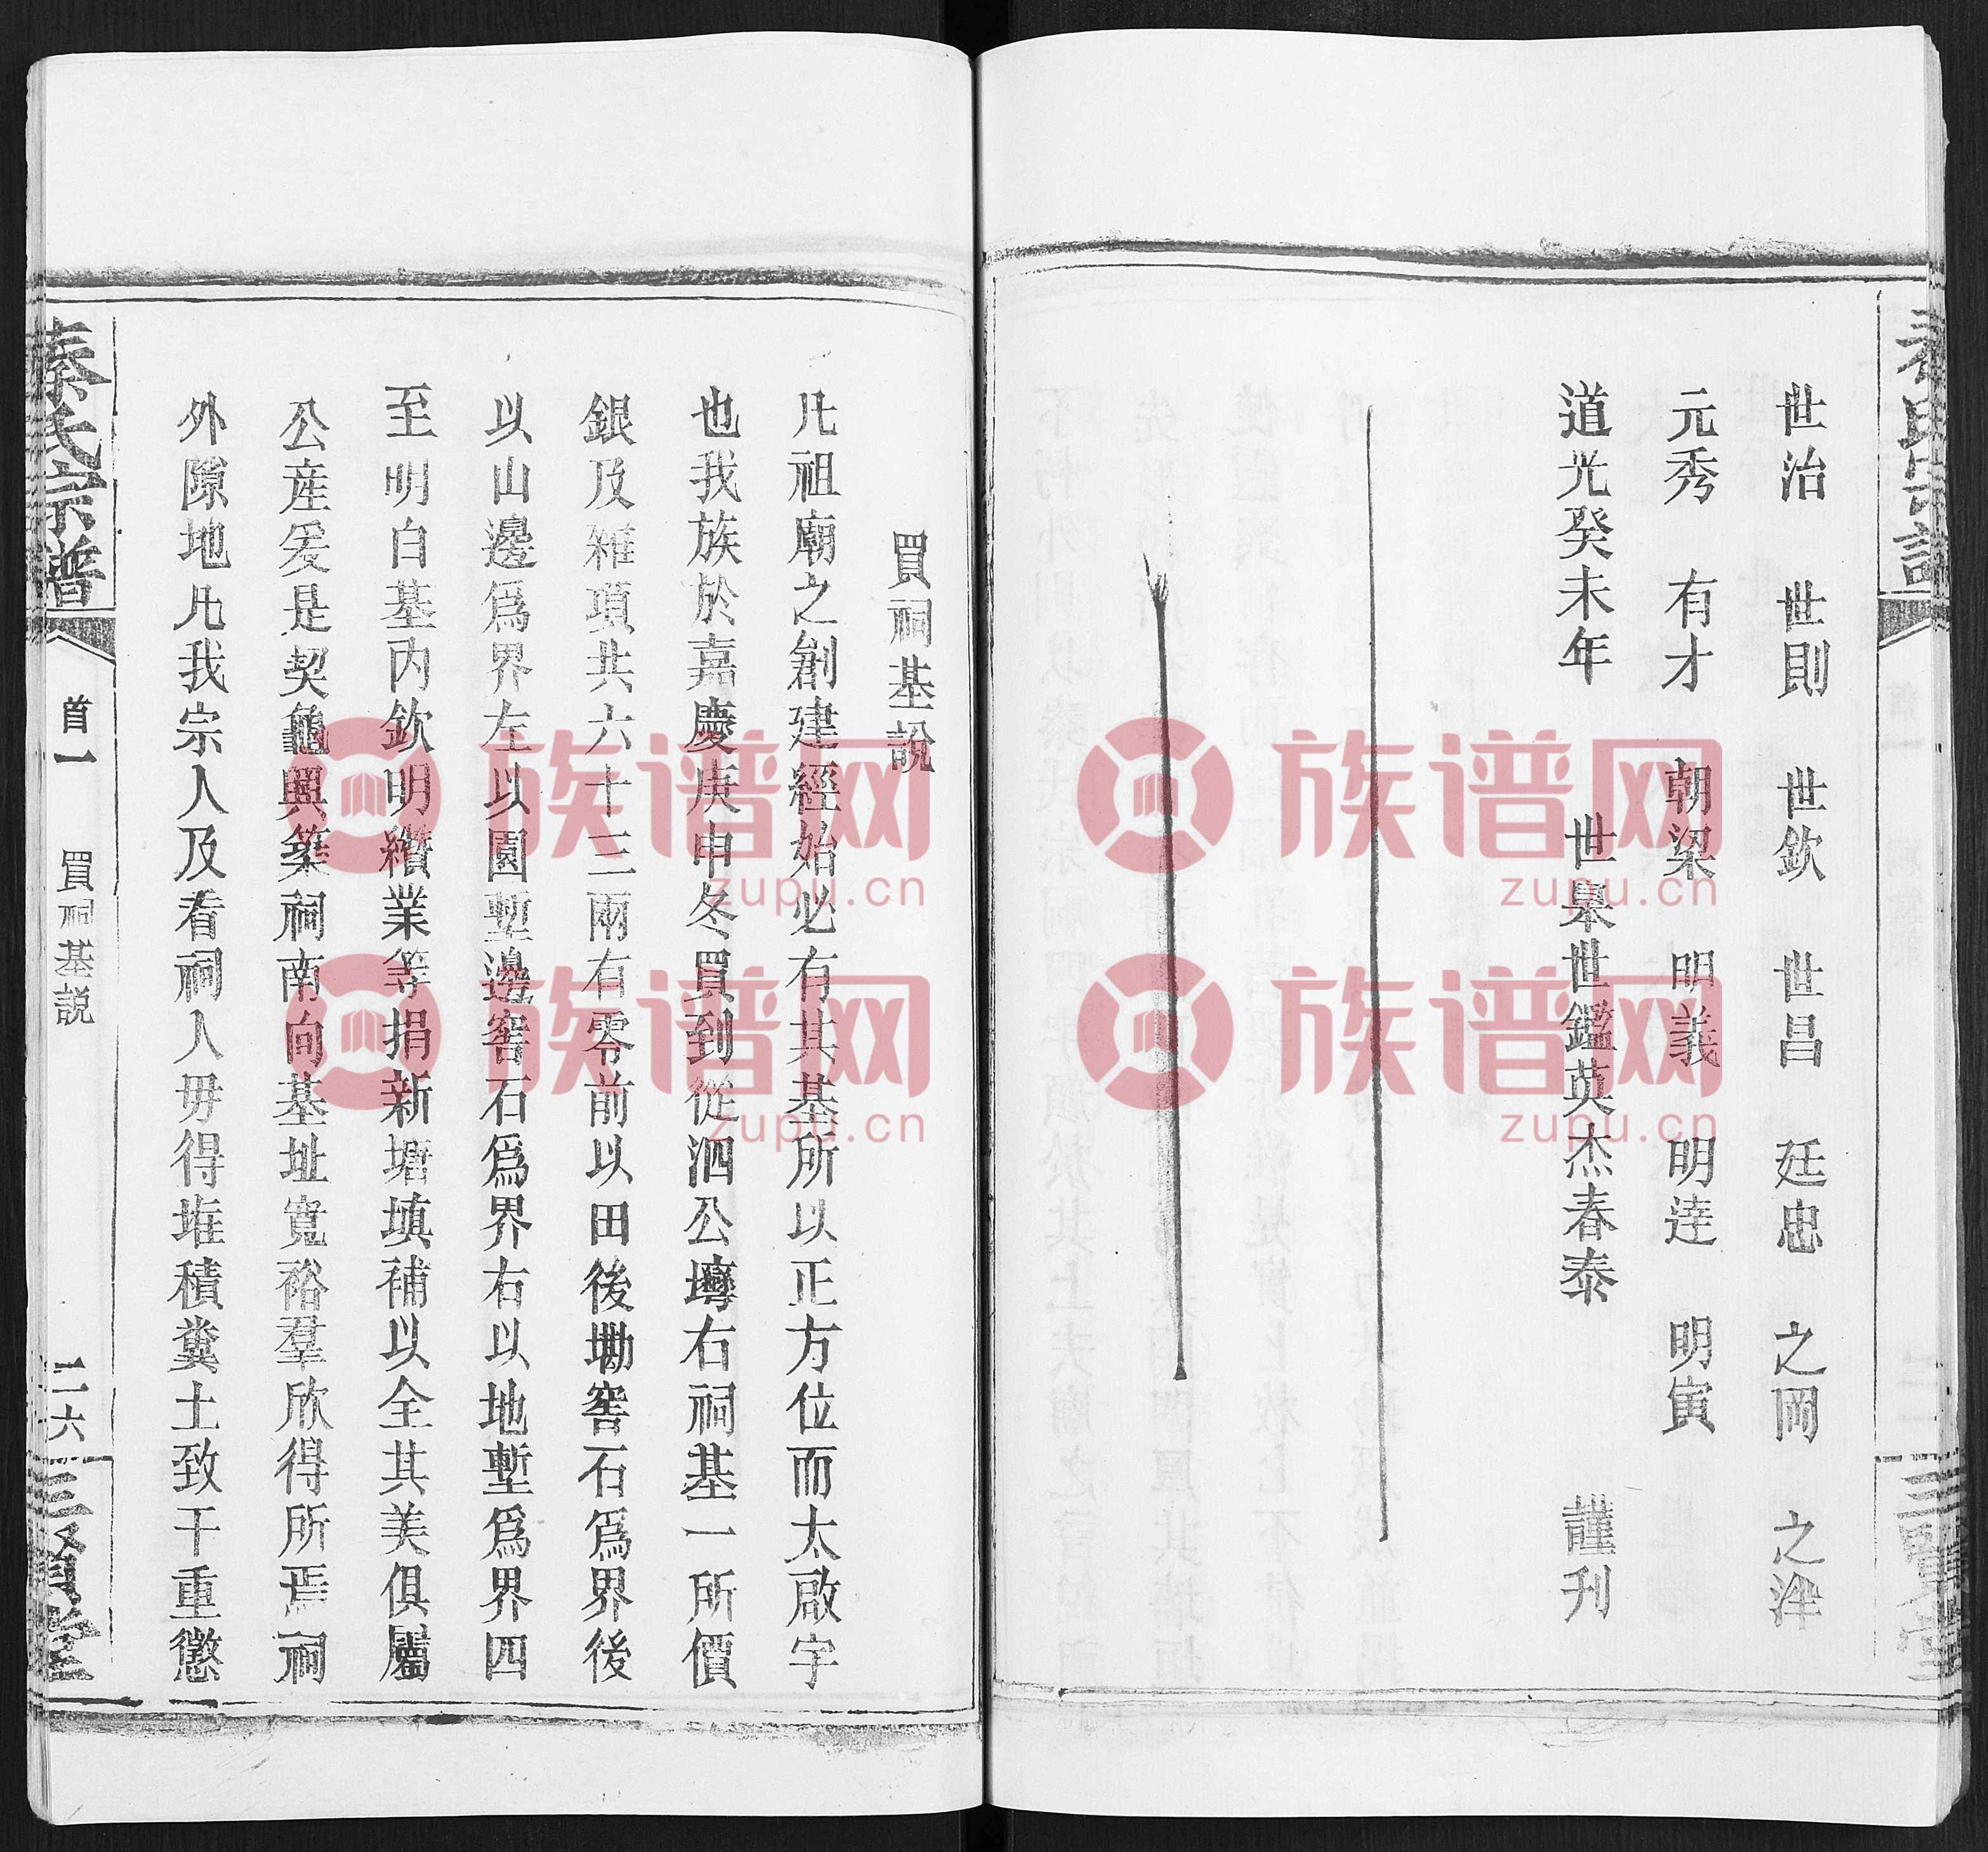 世治 世則 世欽 世昌 廷忠 之岡 之津
元秀 有才 朝梁 明義 明達 明寅
道光癸未年 世舉世鑑英杰春泰 謹刊
買祠基說
凡祖廟之創建經始必有其基所以正方位而太啟宇
也我族於嘉慶庚申冬買到從泗公塆右祠基一所價
銀及雜項共六十三兩有零前以田後墈窖石爲界後
以山邊爲界左以園塹邊窖石爲界右以地塹爲界四
至明白基內欽明纘業等捐新塘塡補以全其美俱屬
公産爰是契龜興築祠南向基址寬裕羣欣得所焉祠
外隙地凡我宗人及看祠人毋得堆積糞土致干重懲
秦氏宗譜
首一
買祠基説
二六
三賢堂
族谱网
zupu.cn
族谱网
zupu.cn
族谱网
zupu.cn
族谱网
zupu.cn